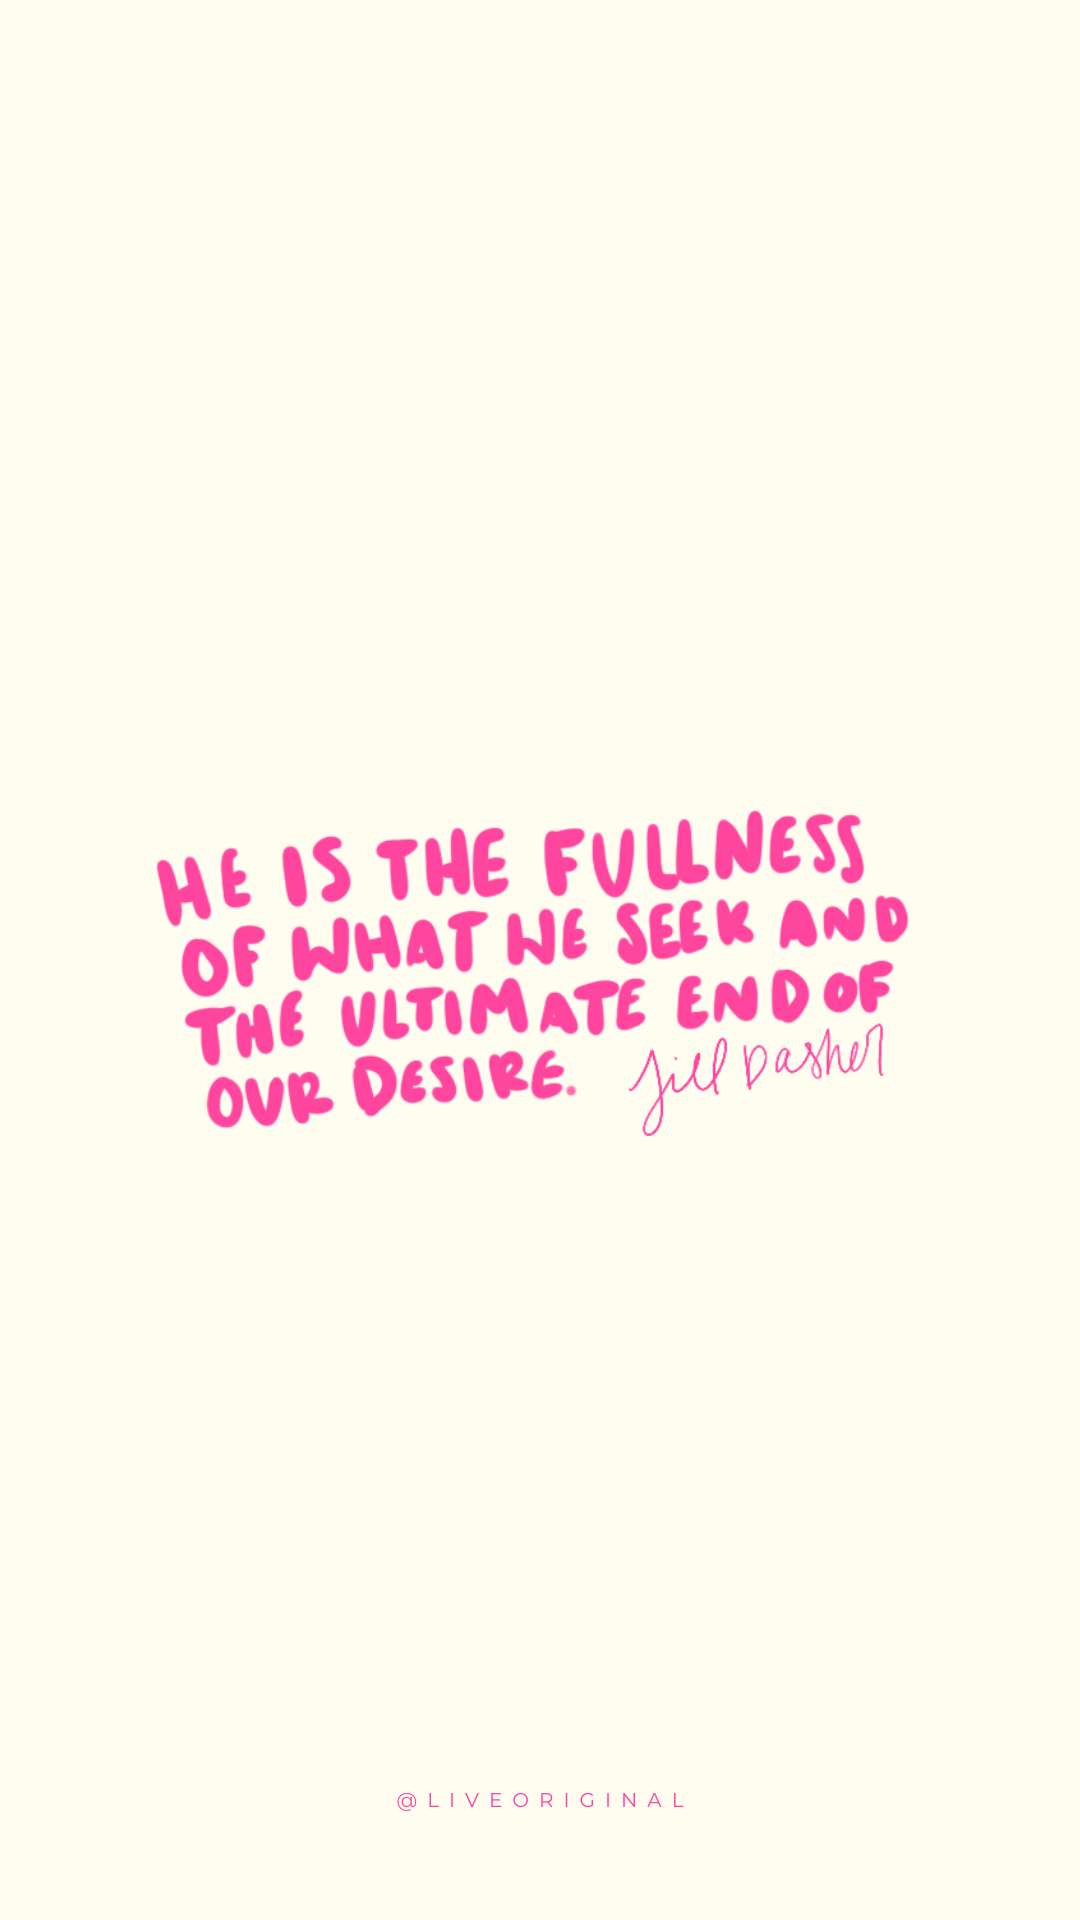 HE IS THE FULLNESS
OF WHAT WE SEEK AND
THE ULTIMATE END OF
OUR DESIRE. Jill Dasher
@LIVEORIGINAL